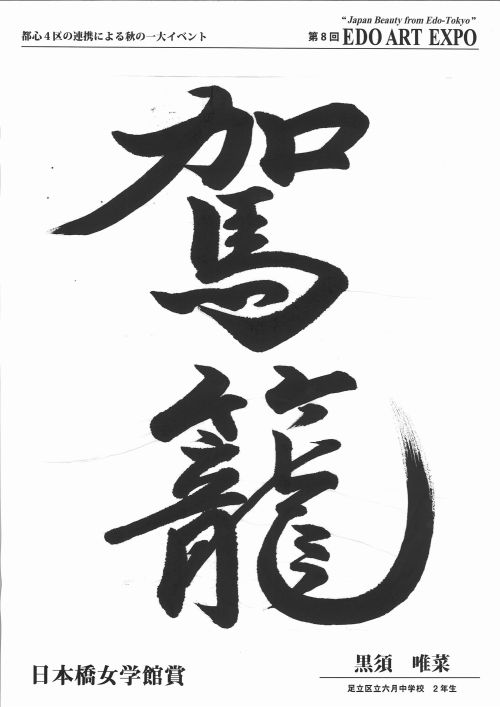 都心4区の連携による秋の一大イベント
“Japan Beauty from Edo-Tokyo”
第8回 EDO ART EXPO
駕
籠
日本橋女学館賞
黒須 唯菜
足立区立六月中学校 2年生